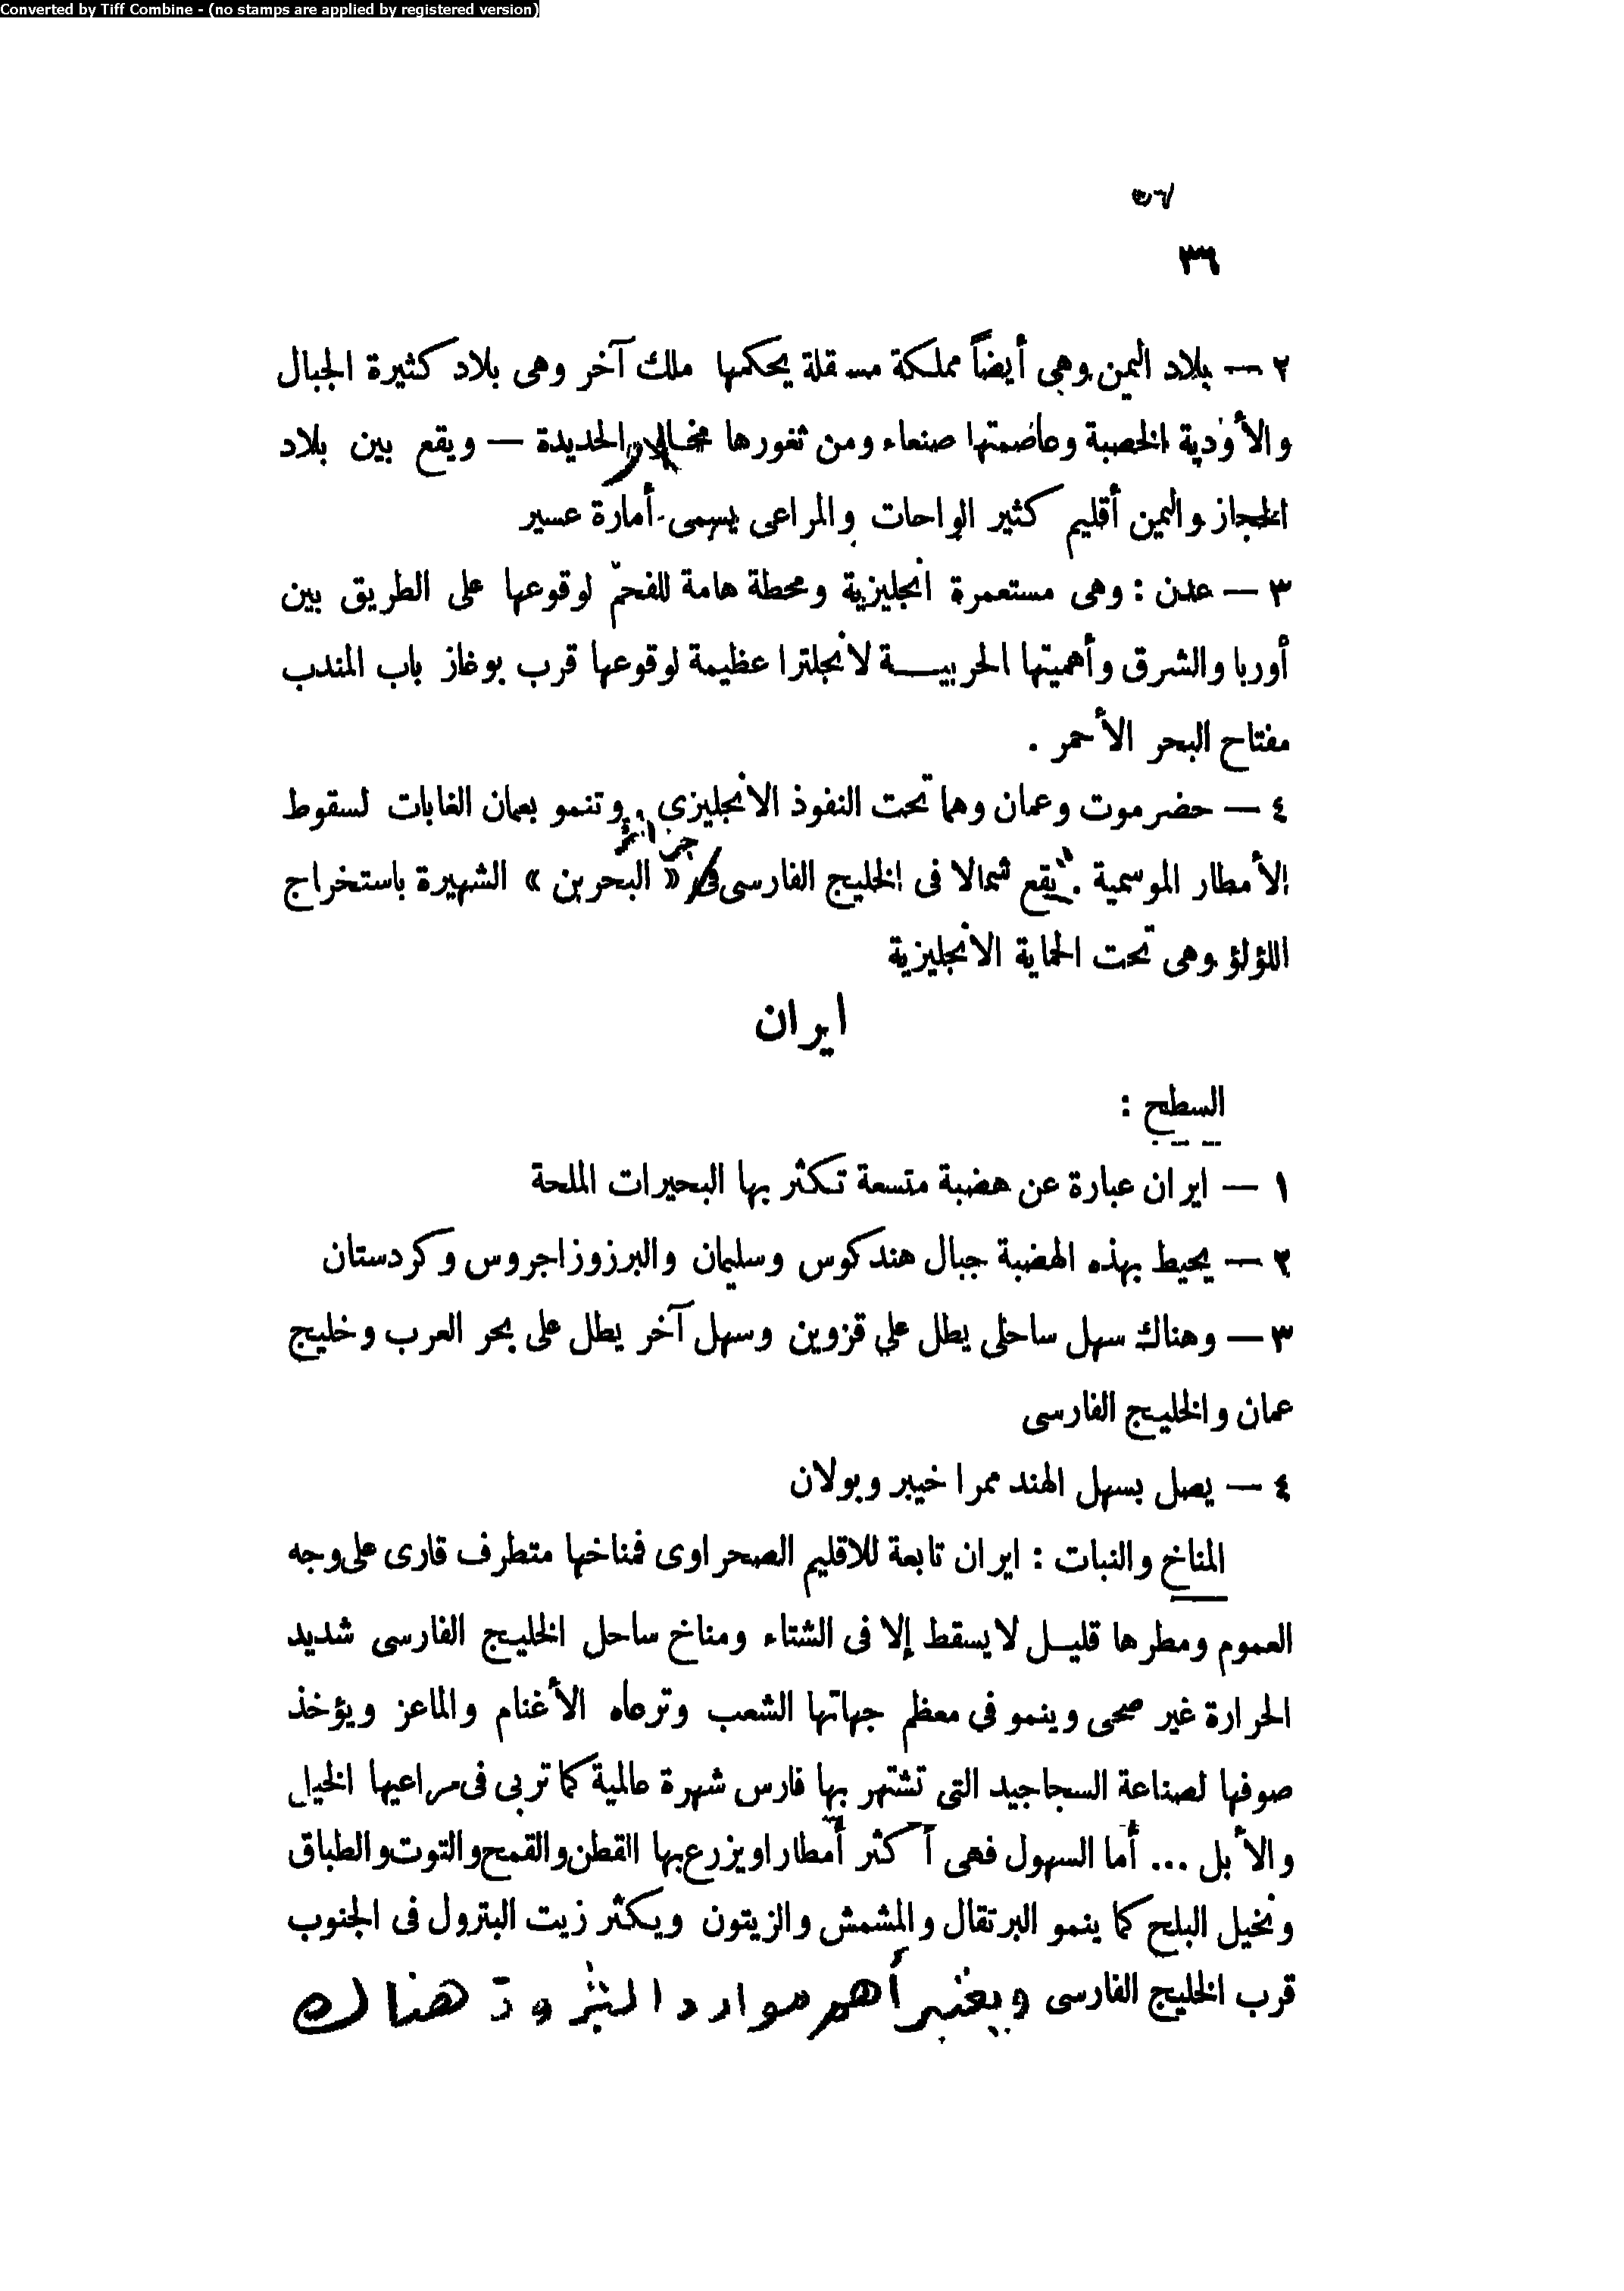 Converted by Tiff Combine - (no stamps are applied by registered version)
٣٦
٢ — بلاد اليمن وهى أيضاً مملكة مستقلة يحكمها ملك آخر وهى بلاد كثيرة الجبال
والأودية الخصبة وعاضمتها صنعاء ومن ثغورها الحديدة — ويقع بين بلاد
الحجاز واليمن أقليم كثير الواحات والمراعى يسمى أمارة عسير
٣ — عدن : وهى مستعمرة انجليزية ومحطة هامة للفحم لوقوعها على الطريق بين
أوربا والشرق وأهميتها الحربيـــة لانجلترا عظيمة لوقوعها قرب بوغاز باب المندب
مفتاح البحر الأحمر .
٤ — حضرموت وعمان وهما تحت النفوذ الانجليزى . وتنمو بعمان الغابات لسقوط
جزائر
الأمطار الموسمية . يقع شمالا فى الخليج الفارسى « البحرين » الشهيرة باستخراج
اللؤلؤ وهى تحت الحماية الانجليزية
ايران
السطح :
١ — ايران عبارة عن هضبة متسعة تكثر بها البحيرات الملحة
٢ — يحيط بهذه الهضبة جبال هندكوس وسليمان والبرزوزاجروس وكردستان
٣ — وهناك سهل ساحلى يطل علي قزوين وسهل آخر يطل على بحر العرب وخليج
عمان والخليج الفارسى
٤ — يصل بسهل الهند ممرا خيبر وبولان
المناخ والنبات : ايران تابعة للاقليم الصحراوى فمناخها متطرف قارى على وجه
العموم ومطرها قليـل لايسقط إلا فى الشتاء ومناخ ساحل الخليج الفارسى شديد
الحرارة غير صحى وينمو في معظم جهاتها الشعب وترعاه الأغنام والماعز ويؤخذ
صوفها لصناعة السجاجيد التى تشتهر بها فارس شهرة عالمية كما تربى فى مراعيها الخيل
والأبل ... أما السهول فهى أكثر أمطارا ويزرع بها القطن والقمح والتوت والطباق
ونخيل البلح كما ينمو البرتقال والمشمش والزيتون ويكثر زيت البترول فى الجنوب
قرب الخليج الفارسى ويعتبر أهم موارد الثروة هناك